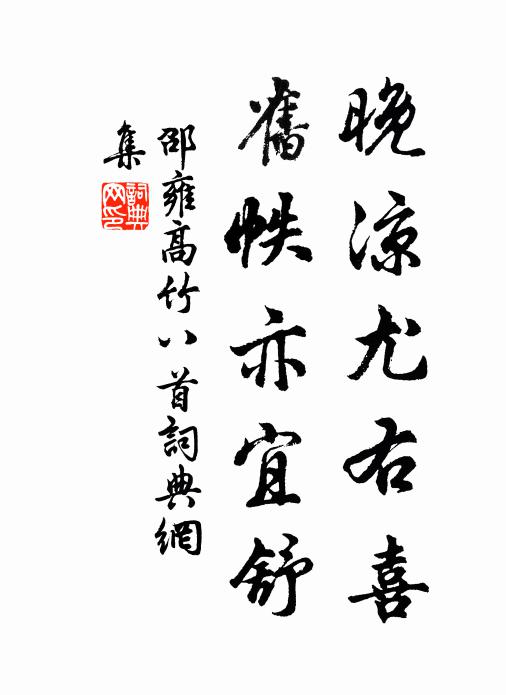 晚涼尤右喜
舊帙亦宜舒
邵雍高竹八首詞典網
集
詞典網印